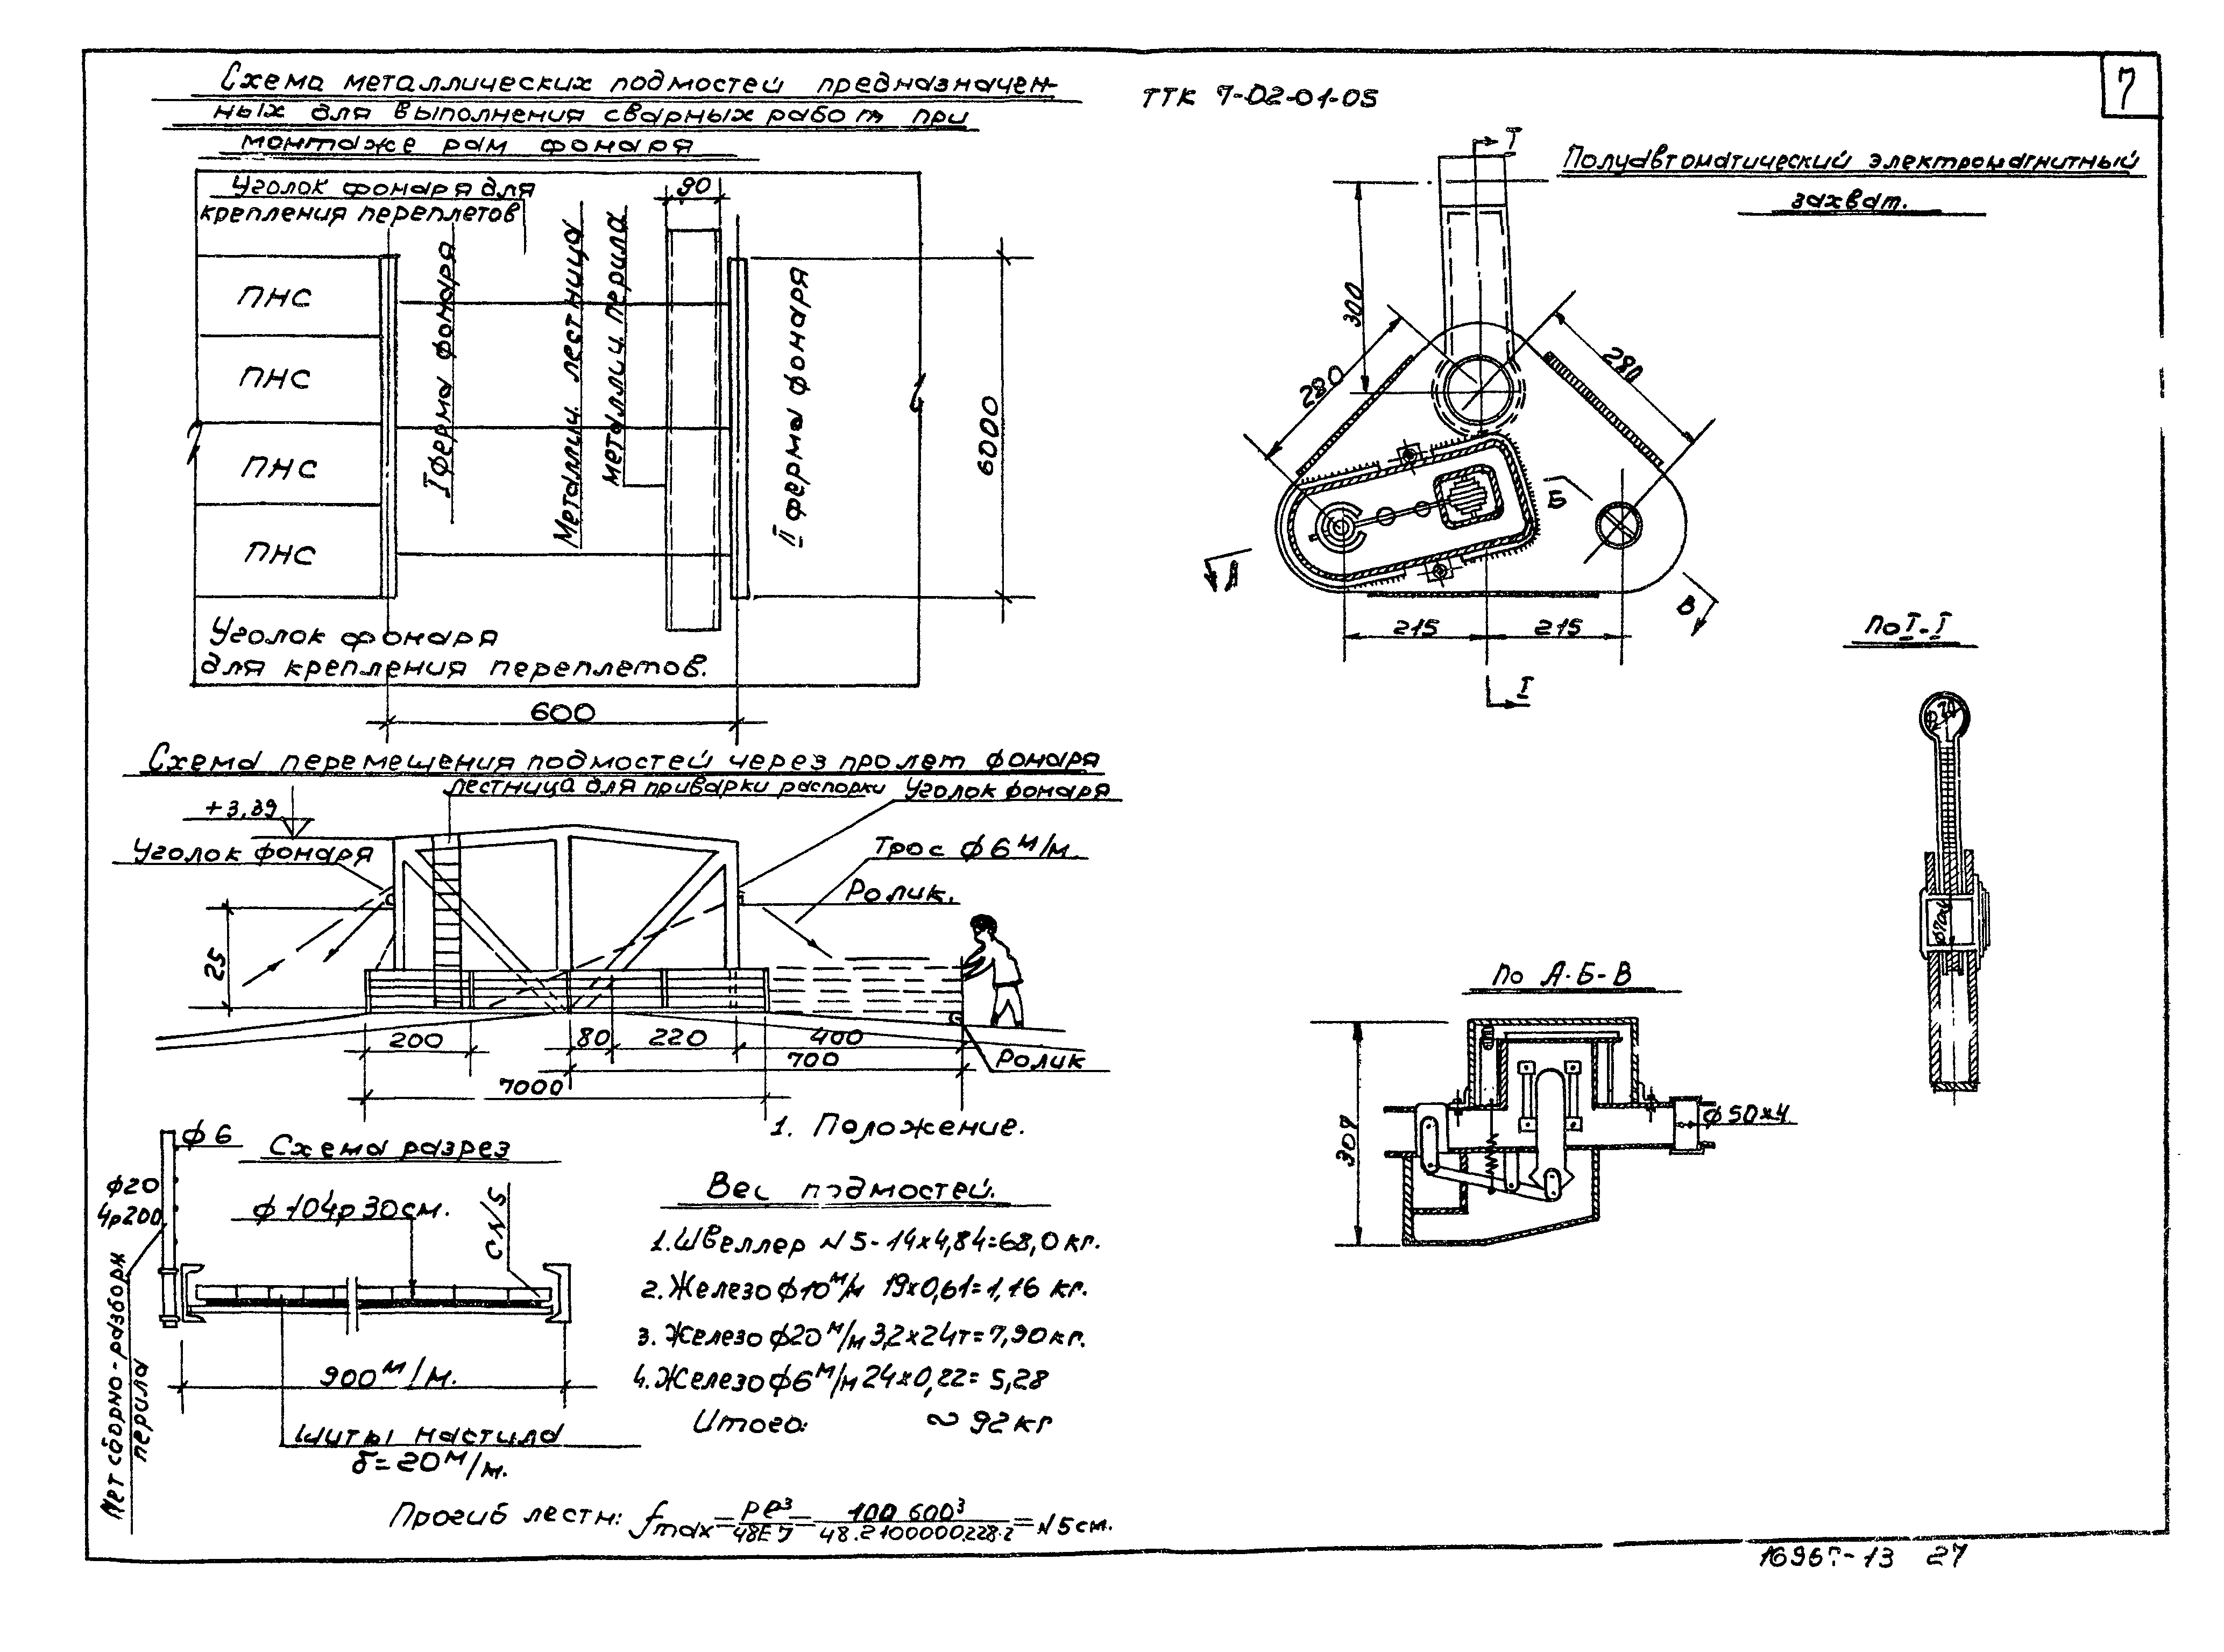 7
Схема металлических подмостей предназначен-
ных для выполнения сварных работ при
монтаже рам фонаря
ТТК 7-02-01-05
Уголок фонаря для
крепления переплетов
90
ПНС
ПНС
ПНС
ПНС
I ферма фонаря
Металлич. лестница
металлич. перила
II ферма фонаря
6000
Уголок фонаря
для крепления переплетов.
600
Полуавтоматический электромагнитный
захват.
I
300
280
280
Б
А
В
215
215
I
По I-I
Схема перемещения подмостей через пролет фонаря
лестница для приварки распорки
Уголок фонаря
+3,39
Уголок фонаря
Трос ф6 м/м.
Ролик.
25
200
80
220
400
700
Ролик
7000
1. Положение.
По А-Б-В
ф50х4
ф6
Схема разрез
ф20
4р200
ф104р30см.
Вес подмостей.
1. Швеллер N5-14х4,84=68,0кг.
2. Железо ф10м/м 19х0,61=1,16 кг.
3. Железо ф20м/м 3,2х24т=7,90кг.
4. Железо ф6м/м 24х0,22=5,28
Итого: ~92кг
900м/м.
щиты настила
δ=20м/м.
сборно-разборн
перила
Прогиб лестн: fmax=
48.2100000.228.2
5см.
27